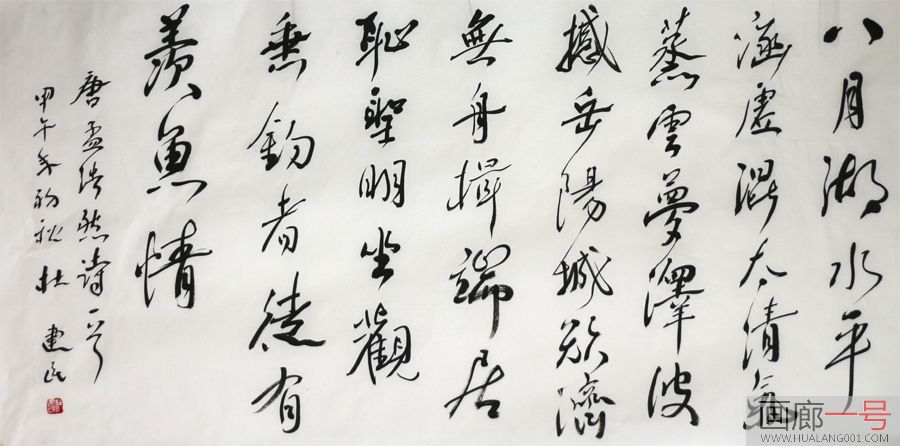 八月湖水平
涵虚混太清氣
蒸雲夢澤波
撼岳陽城欲濟
無舟楫端居
恥聖明坐觀
垂釣者徒有
羨魚情
唐孟浩然詩一首
甲午年初秋 杜建民
画廊一号
WWW.HUALANG001.COM